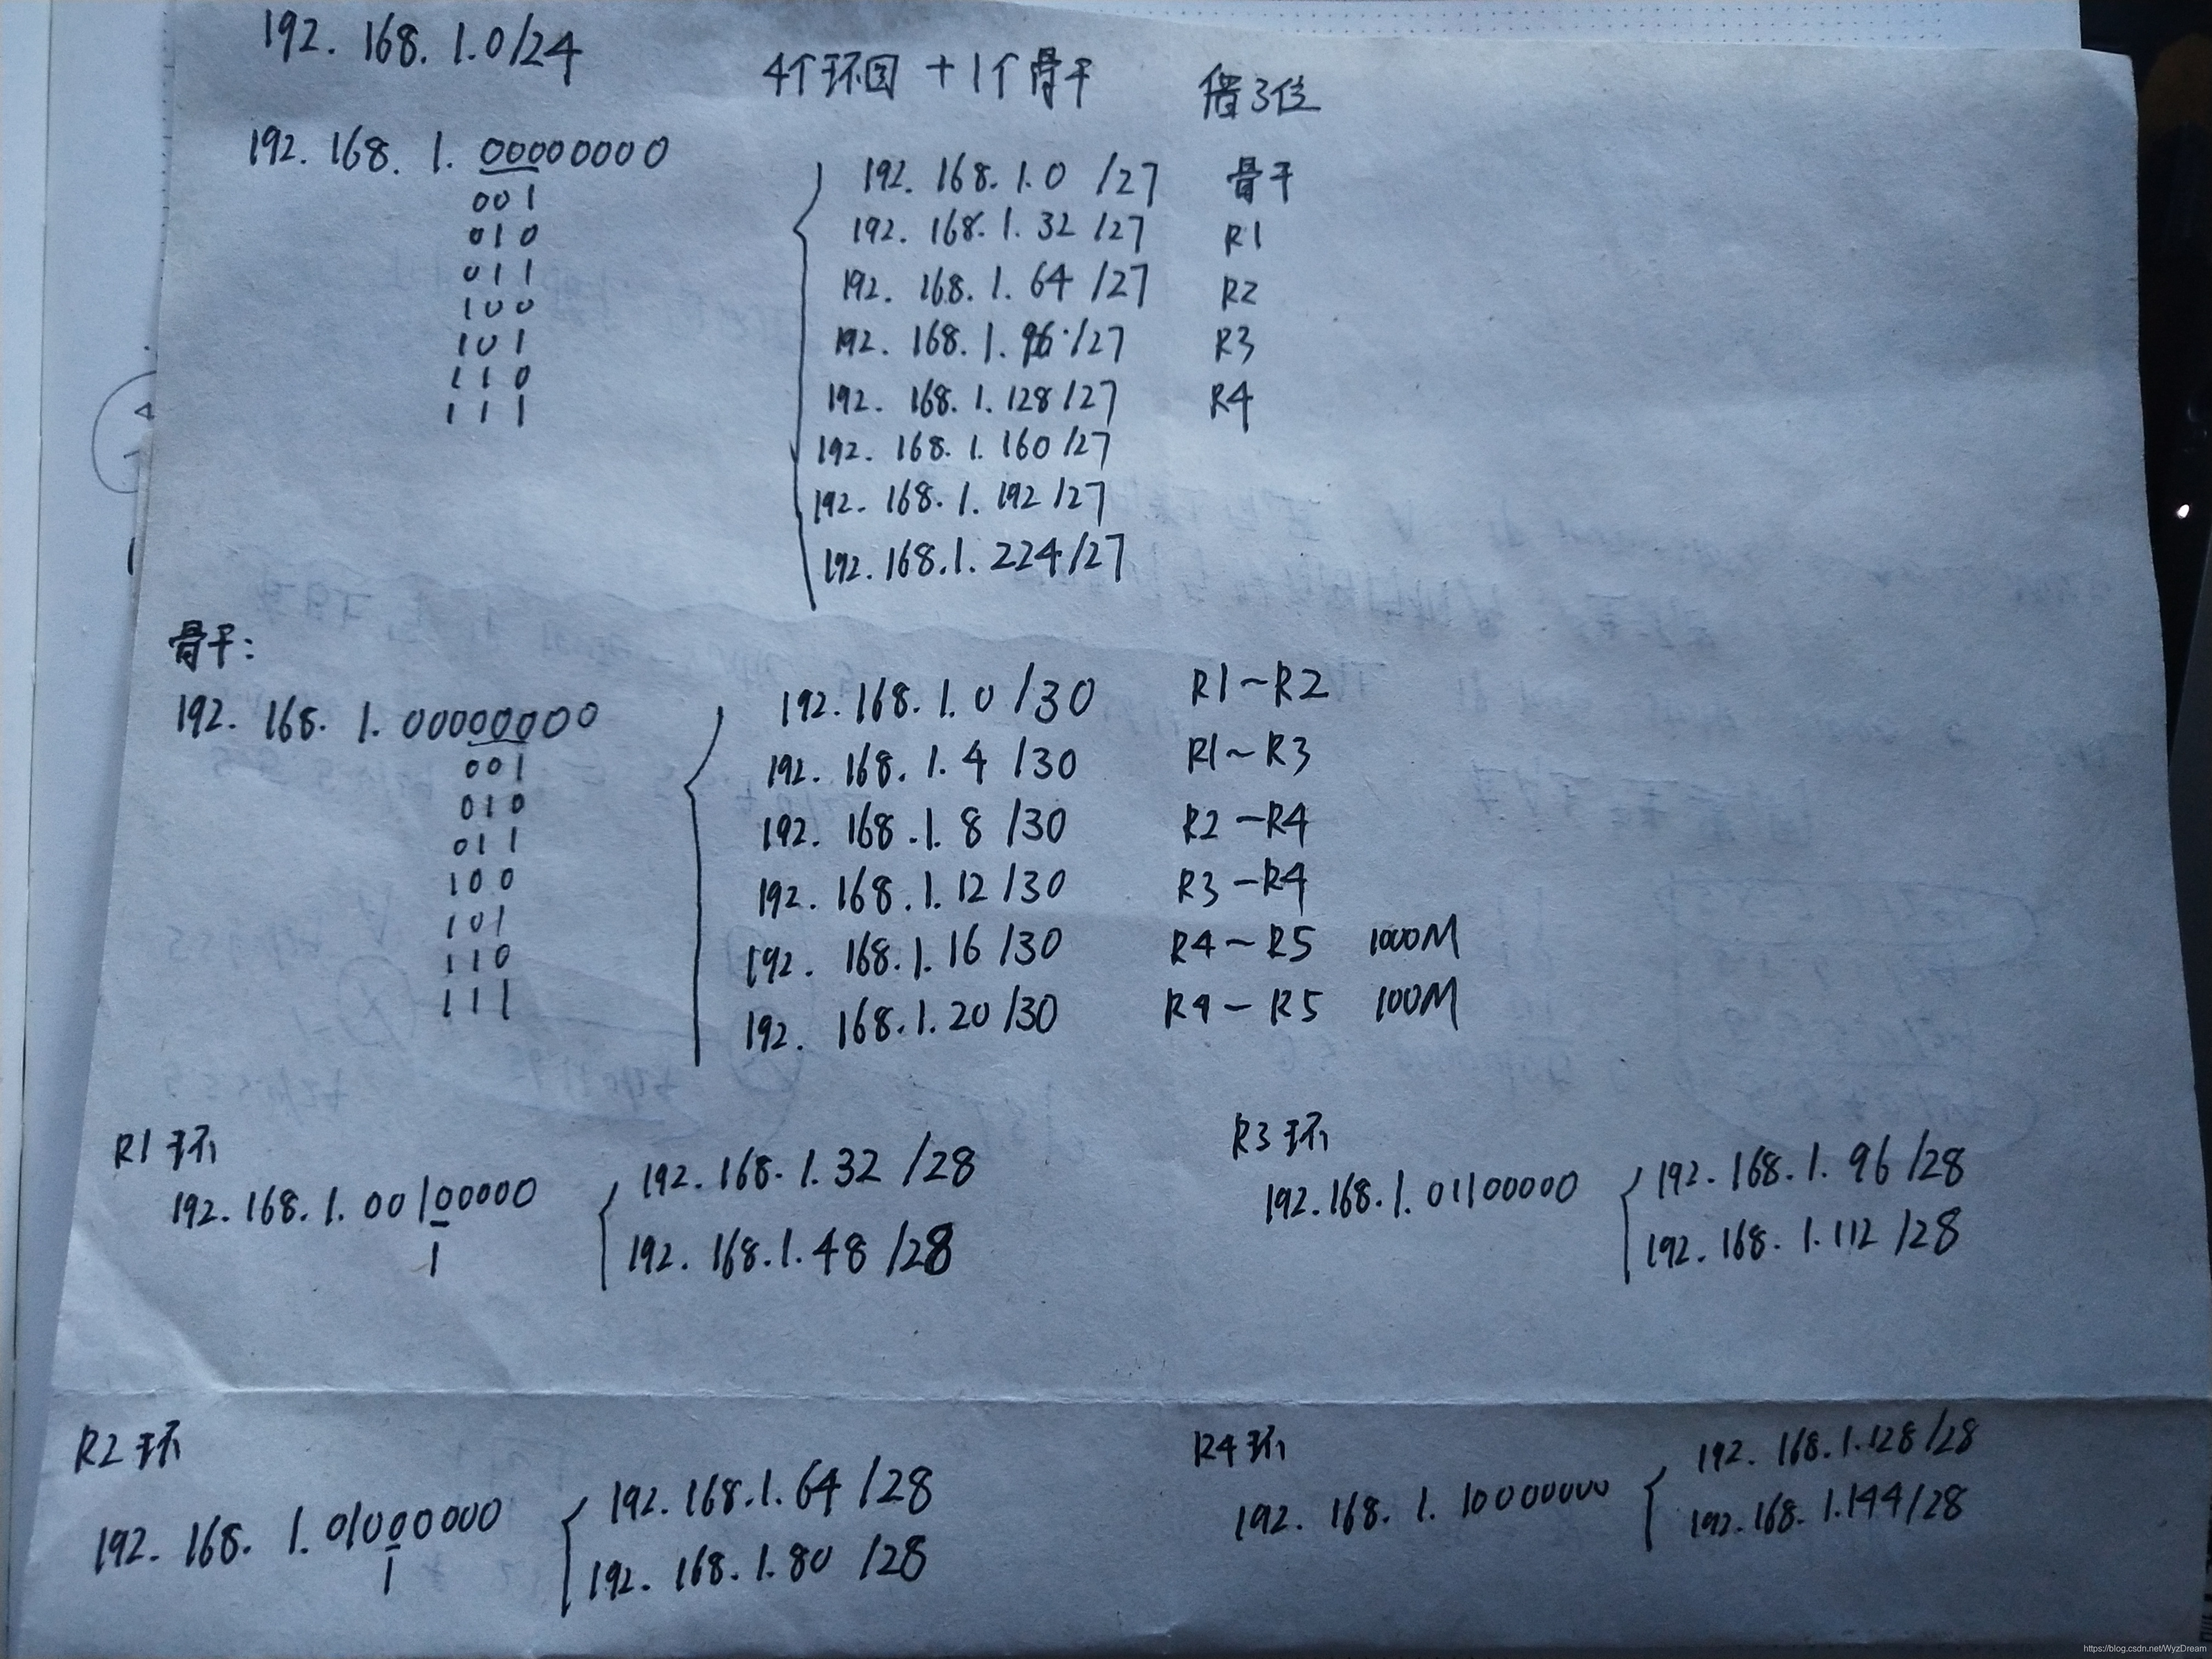 192.168.1.0/24
4个环回 + 1个骨干 借3位
192.168.1.00000000
001
010
011
100
101
110
111
192.168.1.0 /27 骨干
192.168.1.32 /27 R1
192.168.1.64 /27 R2
192.168.1.96 /27 R3
192.168.1.128 /27 R4
192.168.1.160 /27
192.168.1.192 /27
192.168.1.224 /27
骨干:
192.168.1.00000000
001
010
011
100
101
110
111
192.168.1.0 /30 R1~R2
192.168.1.4 /30 R1~R3
192.168.1.8 /30 R2-R4
192.168.1.12 /30 R3-R4
192.168.1.16 /30 R4~R5 1000M
192.168.1.20 /30 R4-R5 100M
R1 环
192.168.1.00100000
1
192.168.1.32 /28
192.168.1.48 /28
R3 环
192.168.1.01100000
192.168.1.96 /28
192.168.1.112 /28
R2 环
192.168.1.01000000
1
192.168.1.64 /28
192.168.1.80 /28
R4 环
192.168.1.10000000
192.168.1.128 /28
192.168.1.144 /28
https://blog.csdn.net/WyzDream